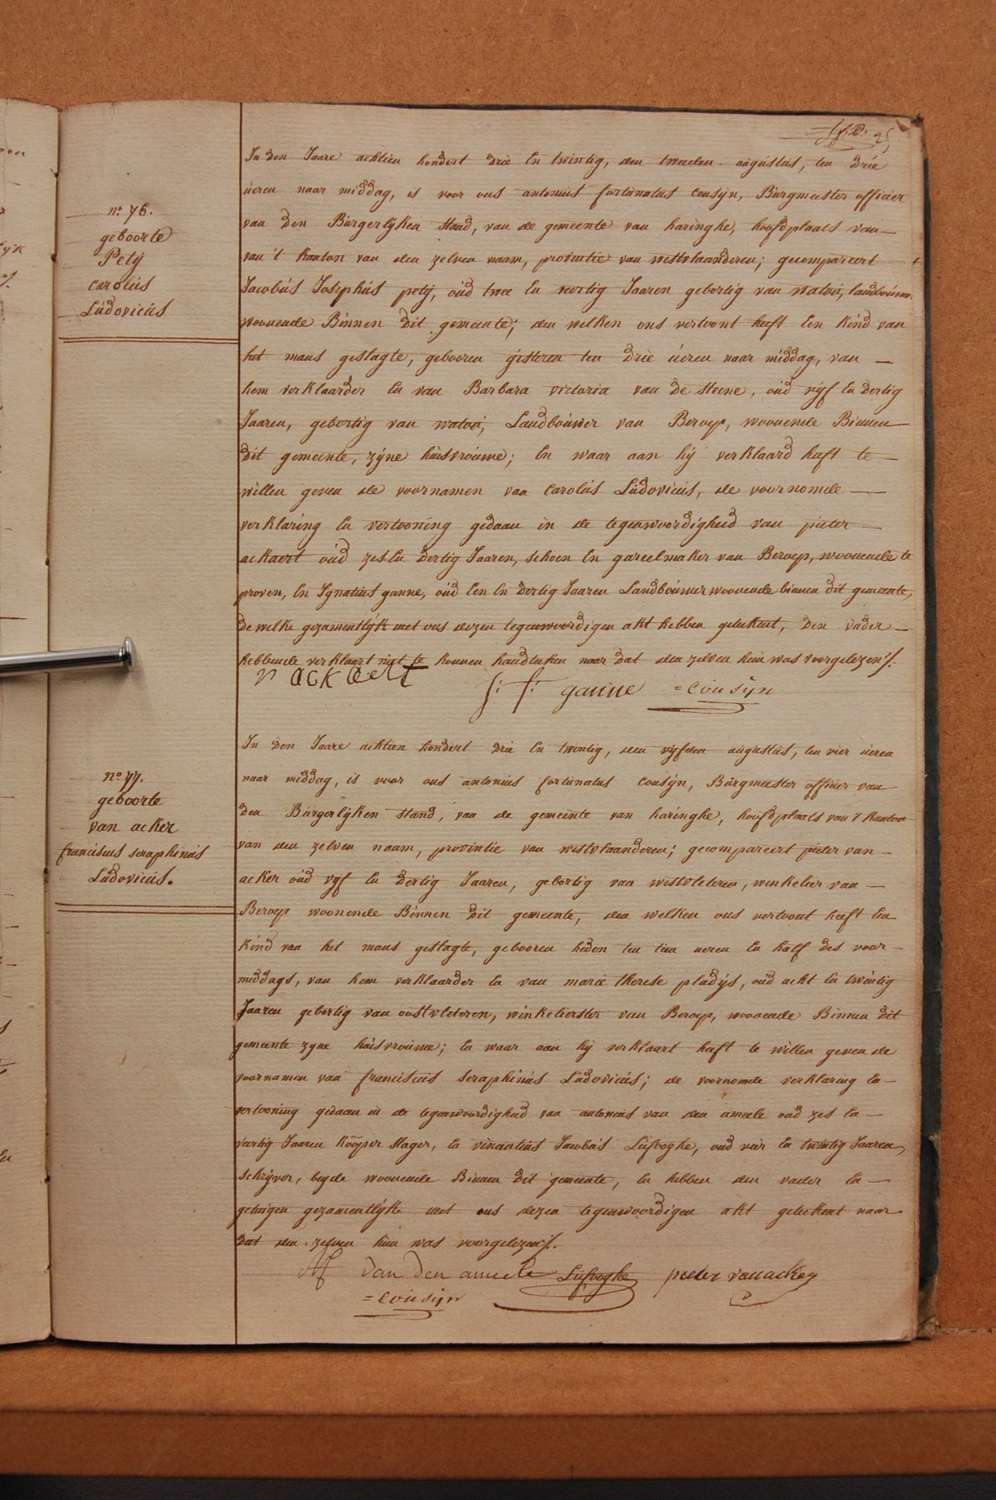 25
n.o 76.
geboorte
Petÿ
Carolus
Ludovicus
In den Jaare achtien hondert drie En twintig, den tweeden augustus, ten drie
üeren naar middag, is voor ons antonius fortunatus Cousÿn, Burgmeester officier
van den Burgerlÿken Stand, van de gemeente van haringhe, hoofdplaats van
van 't kanton van den zelven naam, provintie van westvlaanderen; gecompareert
Jacobus Josephus petÿ, oud twee En veertig Jaaren gebortig van watou, landbouwer
woonende Binnen dit gemeente; den welken ons vertoont heeft Een kind van
het mans geslagte, gebooren gisteren ten drie üeren naar middag, van
hem verklaarder En van Barbara victoria van de Steene, oud vÿf En dertig
Jaaren, gebortig van watou; Landbouwer van Beroep, woonende Binnen
dit gemeente, zÿne huisvrouwe; En waar aan hÿ verklaard heeft te
willen geven de voornamen van Carolus Ludovicus, de voornomde
verklaring En vertooning gedaan in de tegenwoordigheid van pieter
ackaert oud zes En dertig Jaaren, schoen En gareelmaker van Beroep, woonende te
proven, En Ignatius ganne, oud Een En dertig Jaaren Landbouwer woonende binnen dit gemeente,
de welke gezamentlÿk met ons dezen tegenwoordigen akt hebben geteekent, den vader
hebbende verklaart niet te konnen handteeken naar dat den zelven hun was voorgelezen ./.
ackaert
ganne =Cousÿn
n.o 77.
geboorte
van acker
franciscus seraphinus
Ludovicus.
In den Jaare achtien hondert drie En twintig, den vÿfden augustus, ten vier üeren
naar middag, is voor ons antonius fortunatus Cousÿn, Burgmeester officier van
den Burgerlÿken stand, van de gemeente van haringhe, hoofdplaats van 't kanton
van den zelven naam, provintie van westvlaanderen; gecompareert pieter van
acker oud vÿf En dertig Jaaren, gebortig van westvleteren, winkelier van
Beroep woonende Binnen dit gemeente, den welken ons vertoont heeft Een
kind van het mans geslagte, gebooren heden ten tien ueren En half des voor
middags, van hem verklaarder En van marie therese pladÿs, oud acht En twintig
Jaaren gebortig van oostvleteren, winkelierster van Beroep, woonende Binnen dit
gemeente zÿne huisvrouwe; En waar aan hÿ verklaart heeft te willen geven de
voornamen van franciscus seraphinus Ludovicus; de voornomde verklaring En
vertooning gedaan in de tegenwoordigheid van antonius van den ameele oud zes En
veertig Jaaren köÿper Slager, En vinantius Jacobus Lufvoghe, oud vier En twintig Jaaren,
Schrÿver, beÿde woonende Binnen dit gemeente, En hebben den vader En
getuigen gezamentlÿk met ons dezen tegenwoordigen akt geteekent naar
dat den zelven hun was voorgelezen ./.
van den ameele Lufvoghe pieter van acker
=Cousÿn